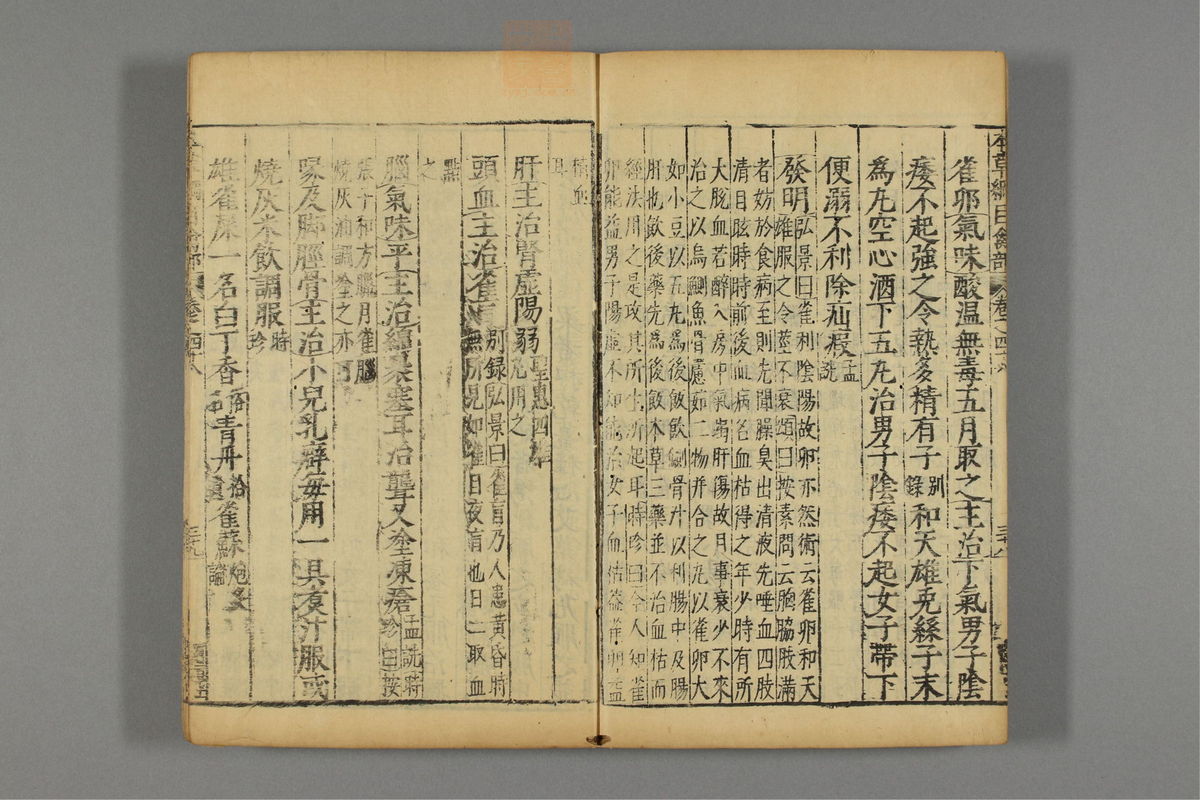 本草綱目禽部 卷之四十八
雀卵氣味酸温無毒五月取之主治下氣男子陰
痿不起強之令熱多精有子别録和天雄兔絲子末
為丸空心酒下五丸治男子陰痿不起女子帶下
便溺不利除疝瘕孟詵
發明弘景曰雀利陰陽故卵亦然術云雀卵和天
雄服之令莖不衰頌曰按素問云胸脇肢滿
者妨於食病至則先聞臊臭出清液先唾血四肢
清目眩時時前後血病名血枯得之年少時有所
大脱血若醉入房中氣竭肝傷故月事衰少不來
治之以烏鰂魚骨藘茹二物并合之丸以雀卵大
如小豆以五丸為後飯飲鰂骨汁以利腸中及腸
肝也飲後藥先為後飯本草三藥並不治血枯而
經法用之是攻其所生所起耳時珍曰今人知雀
卵能益男子陽虚不知能治女子血枯蓋雀卵益
精血
耳
肝主治腎虚陽弱聖惠四雄
丸用之
頭血主治雀盲别録弘景曰雀盲乃人患黄昏時
無所見如雀目夜盲也日二取血
點
之
腦氣味平主治綿裹塞耳治聾又塗凍瘡孟詵時
珍曰按
張子和方臘月雀腦
燒灰油調塗之亦可
喙及脚脛骨主治小兒乳癖每用一具煑汁服或
燒灰米飲調服時
珍
雄雀屎一名白丁香俗名青丹拾遺雀蘇炮炙
論